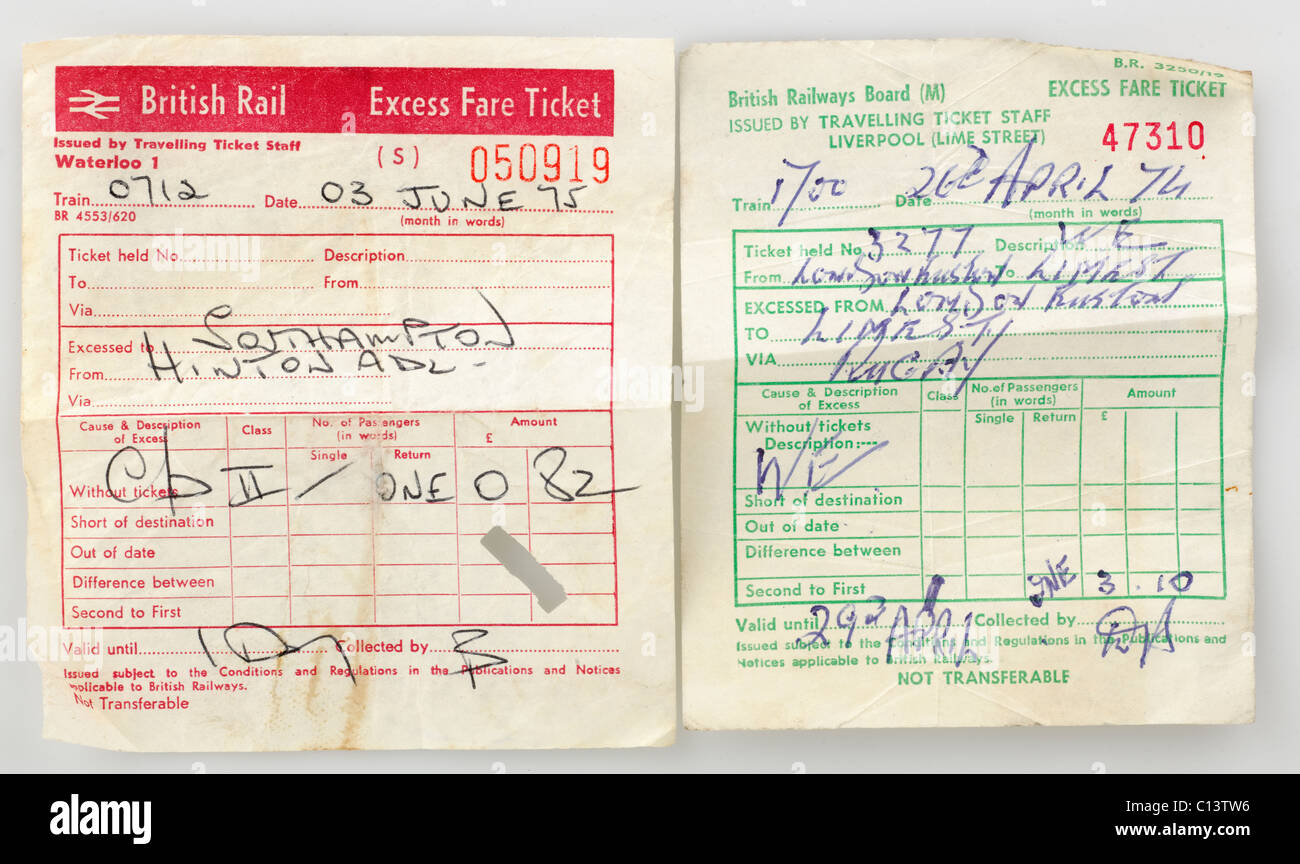 British Rail Excess Fare Ticket
Issued by Travelling Ticket Staff
Waterloo 1 (S) 050919
Train 0712 Date 03 JUNE 75
BR 4553/620 (month in words)
Ticket held No. Description
To From
Via
Excessed to SOUTHAMPTON
From HINTON ADL-
Via
Cause & Description of Excess Class No. of Passengers (in words) Amount
Single Return £
Without tickets II / ONE 0 82
Short of destination
Out of date
Difference between
Second to First
Valid until 1 Day Collected by
Issued subject to the Conditions and Regulations in the Publications and Notices
applicable to British Railways.
Not Transferable
B.R. 3250/19
British Railways Board (M) EXCESS FARE TICKET
ISSUED BY TRAVELLING TICKET STAFF
LIVERPOOL (LIME STREET) 47310
Train 1700 Date 26d APRIL 74
(month in words)
Ticket held No 3277 Description WE
From London Euston To LIME ST.
EXCESSED FROM LONDON EUSTON
TO LIME ST
VIA RUGBY
Cause & Description of Excess Class No. of Passengers (in words) Amount
Single Return £
Without tickets
Description:---
WE
Short of destination
Out of date
Difference between
Second to First ONE 3.10
Valid until 29d APRIL Collected by
Issued subject to the Conditions and Regulations in the Publications and
Notices applicable to British Railways.
NOT TRANSFERABLE
alamy
alamy
Image ID: C13TW6
www.alamy.com